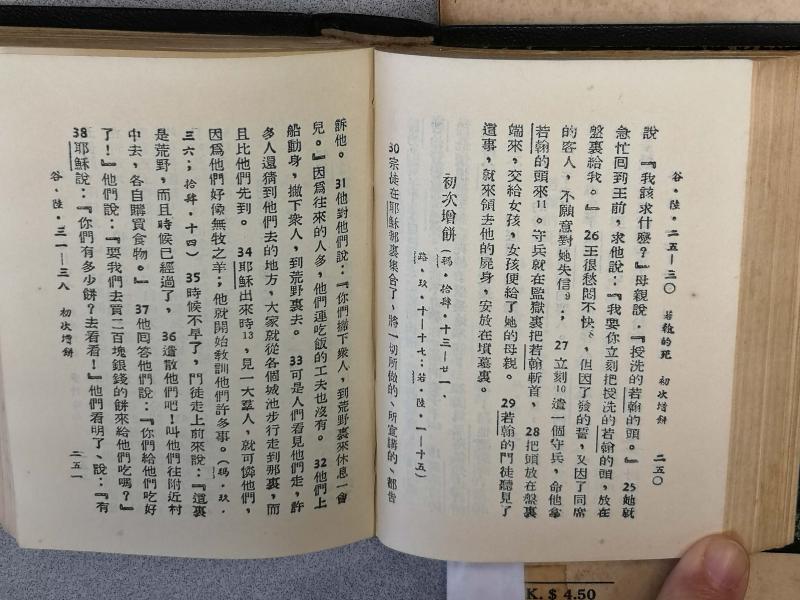 谷．陸．二五—三〇　若翰的死　初次增餅　二五〇
說『我該求什麼？』母親說：『授洗的若翰的頭。』25她就
急忙回到王前，求他說：『我要你立刻把授洗的若翰的頭，放在
盤裏給我。』26王很愁悶不快，但因了發的誓，又因了同席
的客人，不願意對她失信9；27立刻10遣一個守兵，命他拿
若翰的頭來11。守兵就在監獄裏把若翰斬首，28把頭放在盤裏
端來，交給女孩，女孩便給了她的母親。29若翰的門徒聽見了
這事，就來領去他的屍身，安放在墳墓裏。
初次增餅（瑪．拾肆．十三—廿一．
路．玖．十—十七；若．陸．一—十五）
30宗徒在耶穌那裏集合了，將一切所做的、所宣講的、都告
訴他。31他對他們說：『你們撇下衆人，到荒野裏來休息一會
兒。』因爲往來的人多，他們連吃飯的工夫也沒有。32他們上
船動身，撇下衆人，到荒野裏去。33可是人們看見他們走，許
多人還猜到他們去的地方，大家就從各個城池步行走到那裏，而
且比他們先到。34耶穌出來時13，見一大羣人，就可憐他們，
因爲他們好像無牧之羊；他就開始教訓他們許多事。（瑪．玖．
三六；拾肆．十四）35時候不早了，門徒走上前來說：『這裏
是荒野，而且時候已經過了，36遣散他們吧！叫他們往附近村
中去，各自購買食物。』37他回答他們說：『你們給他們吃好
了！』他們說：『要我們去買二百塊銀錢的餅來給他們吃嗎？』
38耶穌說：『你們有多少餅？去看看！』他們看明了、說：『有
谷．陸．三一—三八　初次增餅　二五一
K. $ 4.50